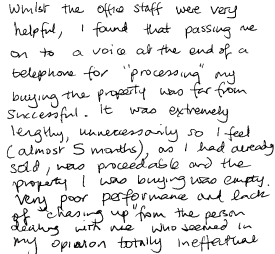 Whilst the office staff were very
helpful, I found that passing me
on to a voice at the end of a
telephone for "processing" my
buying the property was far from
successful. It was extremely
lengthy, unnecessarily so I feel
(almost 5 months), as I had already
sold, was proceedable and the
property I was buying was empty.
Very poor performance and lack
of "chasing up" from the person
dealing with me who seemed in
my opinion totally ineffectual